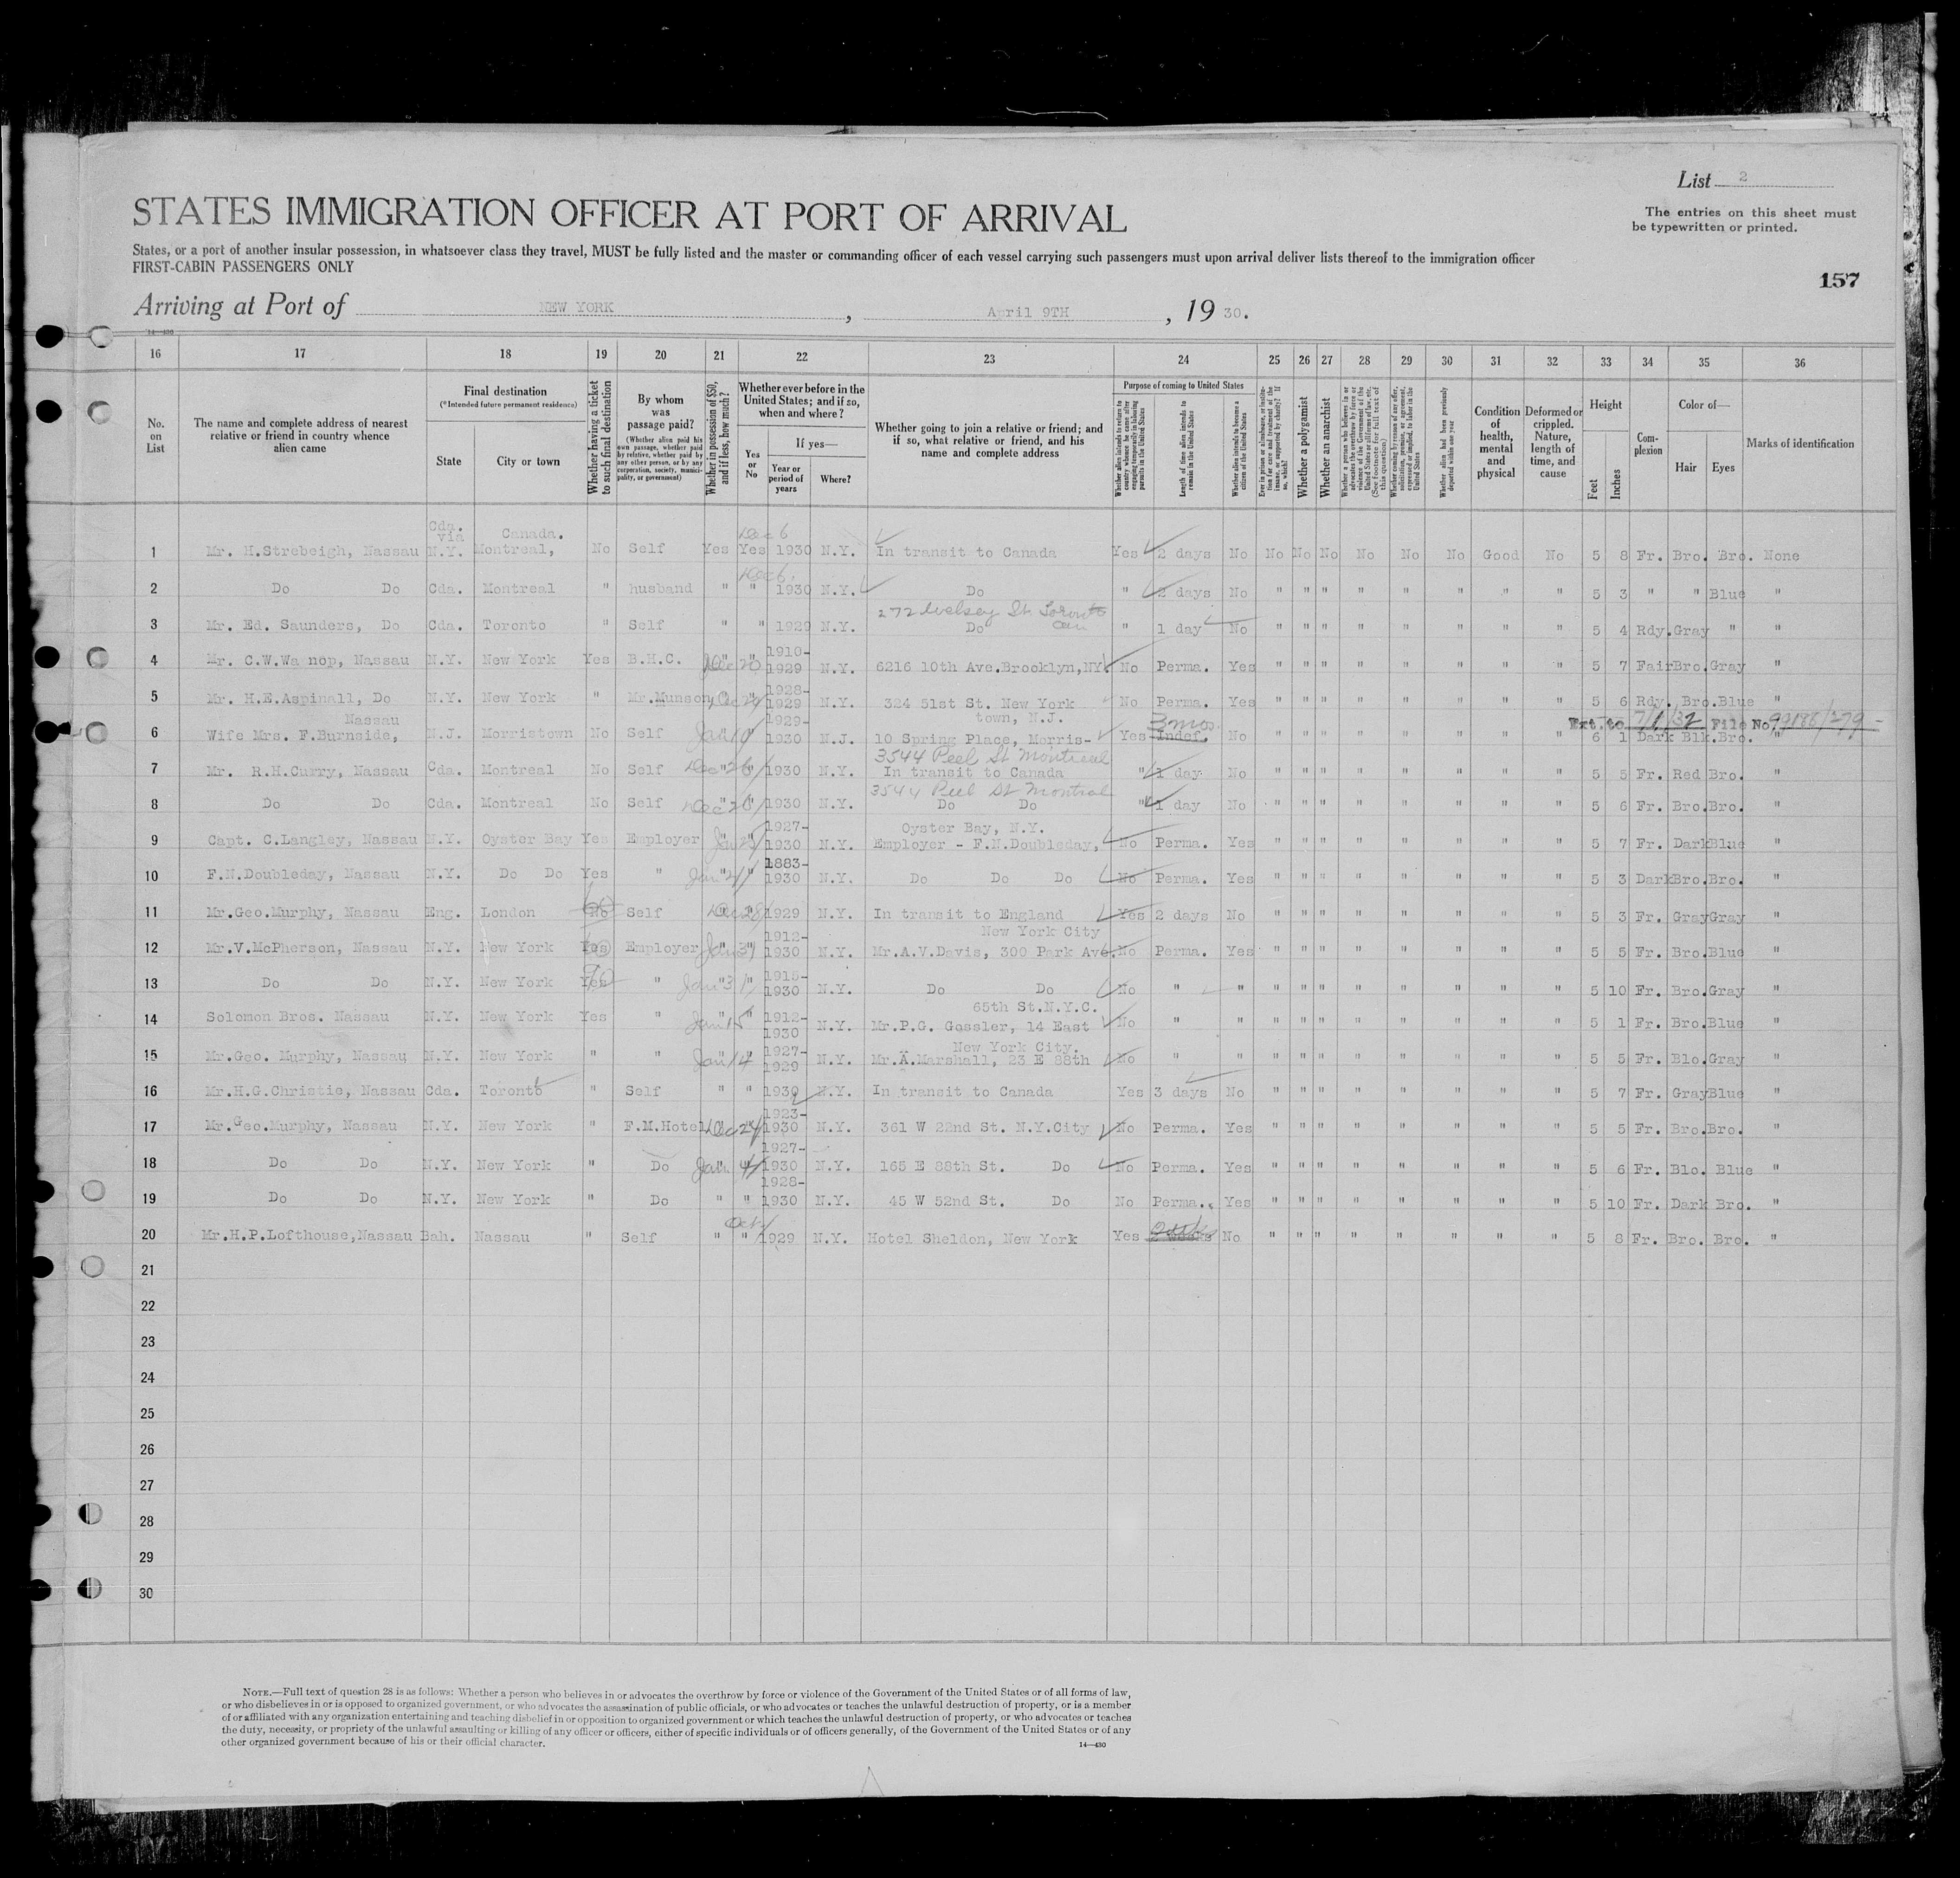 List 2
STATES IMMIGRATION OFFICER AT PORT OF ARRIVAL
The entries on this sheet must
be typewritten or printed.
States, or a port of another insular possession, in whatsoever class they travel, MUST be fully listed and the master or commanding officer of each vessel carrying such passengers must upon arrival deliver lists thereof to the immigration officer
FIRST-CABIN PASSENGERS ONLY
157
Arriving at Port of NEW YORK, April 9TH, 19 30.
14—430
16 17 18 19 20 21 22 23 24 25 26 27 28 29 30 31 32 33 34 35 36
No. on List
The name and complete address of nearest relative or friend in country whence alien came
Final destination
(*Intended future permanent residence)
State City or town
Whether having a ticket to such final destination
By whom was passage paid?
(Whether alien paid his own passage, whether paid by relative, whether paid by any other person, or by any corporation, society, municipality, or government)
Whether in possession of $50, and if less, how much?
Whether ever before in the United States; and if so, when and where?
Yes or No
If yes—
Year or period of years
Where?
Whether going to join a relative or friend; and if so, what relative or friend, and his name and complete address
Purpose of coming to United States
Whether alien intends to return to country whence he came after engaging temporarily in laboring pursuits in the United States
Length of time alien intends to remain in the United States
Whether alien intends to become a citizen of the United States
Ever in prison or almshouse, or institution for care and treatment of the insane, or supported by charity? If so, which?
Whether a polygamist
Whether an anarchist
Whether a person who believes in or advocates the overthrow by force or violence of the Government of the United States or all forms of law, etc. (See footnote for full text of this question)
Whether coming by reason of any offer, solicitation, promise, or agreement, expressed or implied, to labor in the United States
Whether alien had been previously deported within one year
Condition of health, mental and physical
Deformed or crippled. Nature, length of time, and cause
Height
Feet Inches
Complexion
Color of—
Hair Eyes
Marks of identification
Cda. via Canada. Dec 6
1 Mr. H.Strebeigh, Nassau N.Y. Montreal, No Self Yes Yes 1930 N.Y. In transit to Canada Yes 2 days No No No No No No No Good No 5 8 Fr. Bro. Bro. None
Dec 6.
2 Do Do Cda. Montreal " husband " " 1930 N.Y. Do " 2 days No " " " " " " " " 5 3 " " Blue "
272 St. Toronto Can
3 Mr. Ed. Saunders, Do Cda. Toronto " Self " " 1929 N.Y. Do " 1 day No " " " " " " " " 5 4 Rdy. Gray " "
1910-
4 Mr. C.W.Wa nop, Nassau N.Y. New York Yes B.H.C. Dec 20 " 1929 N.Y. 6216 10th Ave.Brooklyn,NY No Perma. Yes " " " " " " " " 5 7 Fair Bro. Gray "
1928-
5 Mr. H.E.Aspinall, Do N.Y. New York " Mr.Munson Dec 24 1929 N.Y. 324 51st St. New York No Perma. Yes " " " " " " " " 5 6 Rdy. Bro. Blue "
Nassau 1929- town, N.J. 3 mos. Ext. to 7/1/32 File No. 99188/279
6 Wife Mrs. F.Burnside, N.J. Morristown No Self Jan 10 " 1930 N.J. 10 Spring Place, Morris- Yes Indef. No " " " " " " " " 6 1 Dark Blk. Bro. "
3544 Peel St Montreal
7 Mr. R.H.Curry, Nassau Cda. Montreal No Self Dec 26 " 1930 N.Y. In transit to Canada " 1 day No " " " " " " " " 5 5 Fr. Red Bro. "
3544 Peel St Montreal
8 Do Do Cda. Montreal No Self Dec 26 " 1930 N.Y. Do Do " 1 day No " " " " " " " " 5 6 Fr. Bro. Bro. "
1927- Oyster Bay, N.Y.
9 Capt. C.Langley, Nassau N.Y. Oyster Bay Yes Employer Jan " 1930 N.Y. Employer - F.N.Doubleday, No Perma. Yes " " " " " " " " 5 7 Fr. Dark Blue "
1883-
10 F.N.Doubleday, Nassau N.Y. Do Do Yes " Jan 21 " 1930 N.Y. Do Do Do No Perma. Yes " " " " " " " " 5 3 Dark Bro. Bro. "
11 Mr.Geo.Murphy, Nassau Eng. London No Self Dec 28 " 1929 N.Y. In transit to England Yes 2 days No " " " " " " " " 5 3 Fr. Gray Gray "
1912- New York City
12 Mr.V.McPherson, Nassau N.Y. New York Yes Employer Jan 31 " 1930 N.Y. Mr.A.V.Davis, 300 Park Ave. No Perma. Yes " " " " " " " " 5 5 Fr. Bro. Blue "
1915-
13 Do Do N.Y. New York Yes " Jan 31 " 1930 N.Y. Do Do No " " " " " " " " " " 5 10 Fr. Bro. Gray "
65th St.N.Y.C.
14 Solomon Bros. Nassau N.Y. New York Yes " Jan 15 " 1912-1930 N.Y. Mr.P.G. Gossler, 14 East No " " " " " " " " " " 5 1 Fr. Bro. Blue "
New York City.
15 Mr.Geo. Murphy, Nassau N.Y. New York " " Jan 14 " 1927-1929 N.Y. Mr.A.Marshall, 23 E 88th No " " " " " " " " " " 5 5 Fr. Blo. Gray "
16 Mr.H.G.Christie, Nassau Cda. Toronto " Self " " 1930 N.Y. In transit to Canada Yes 3 days No " " " " " " " " 5 7 Fr. Gray Blue "
1923-
17 Mr.Geo.Murphy, Nassau N.Y. New York " F.M.Hotel Dec 24 1930 N.Y. 361 W 22nd St. N.Y.City No Perma. Yes " " " " " " " " 5 5 Fr. Bro. Bro. "
1927-
18 Do Do N.Y. New York " Do Jan 4 " 1930 N.Y. 165 E 88th St. Do No Perma. Yes " " " " " " " " 5 6 Fr. Blo. Blue "
1928-
19 Do Do N.Y. New York " Do " " 1930 N.Y. 45 W 52nd St. Do No Perma. Yes " " " " " " " " 5 10 Fr. Dark Bro. "
Oct
20 Mr.H.P.Lofthouse,Nassau Bah. Nassau " Self " " 1929 N.Y. Hotel Sheldon, New York Yes No " " " " " " " " 5 8 Fr. Bro. Bro. "
21
22
23
24
25
26
27
28
29
30
NOTE.—Full text of question 28 is as follows: Whether a person who believes in or advocates the overthrow by force or violence of the Government of the United States or of all forms of law,
or who disbelieves in or is opposed to organized government, or who advocates the assassination of public officials, or who advocates or teaches the unlawful destruction of property, or is a member
of or affiliated with any organization entertaining and teaching disbelief in or opposition to organized government or which teaches the unlawful destruction of property, or who advocates or teaches
the duty, necessity, or propriety of the unlawful assaulting or killing of any officer or officers, either of specific individuals or of officers generally, of the Government of the United States or of any
other organized government because of his or their official character.
14—430